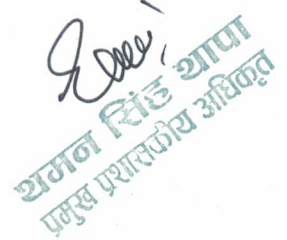 थमन सिंह थापा
प्रमुख प्रशासकीय अधिकृत